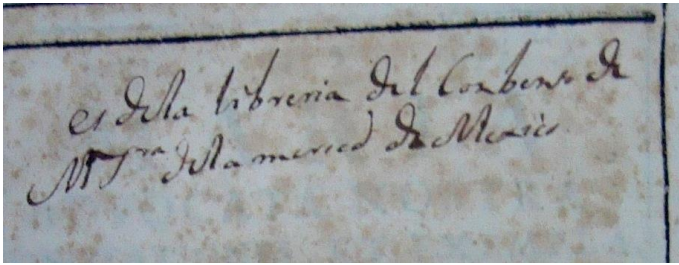 es de la libreria del Conbento de
Nrª Srª de la merced de Mexico